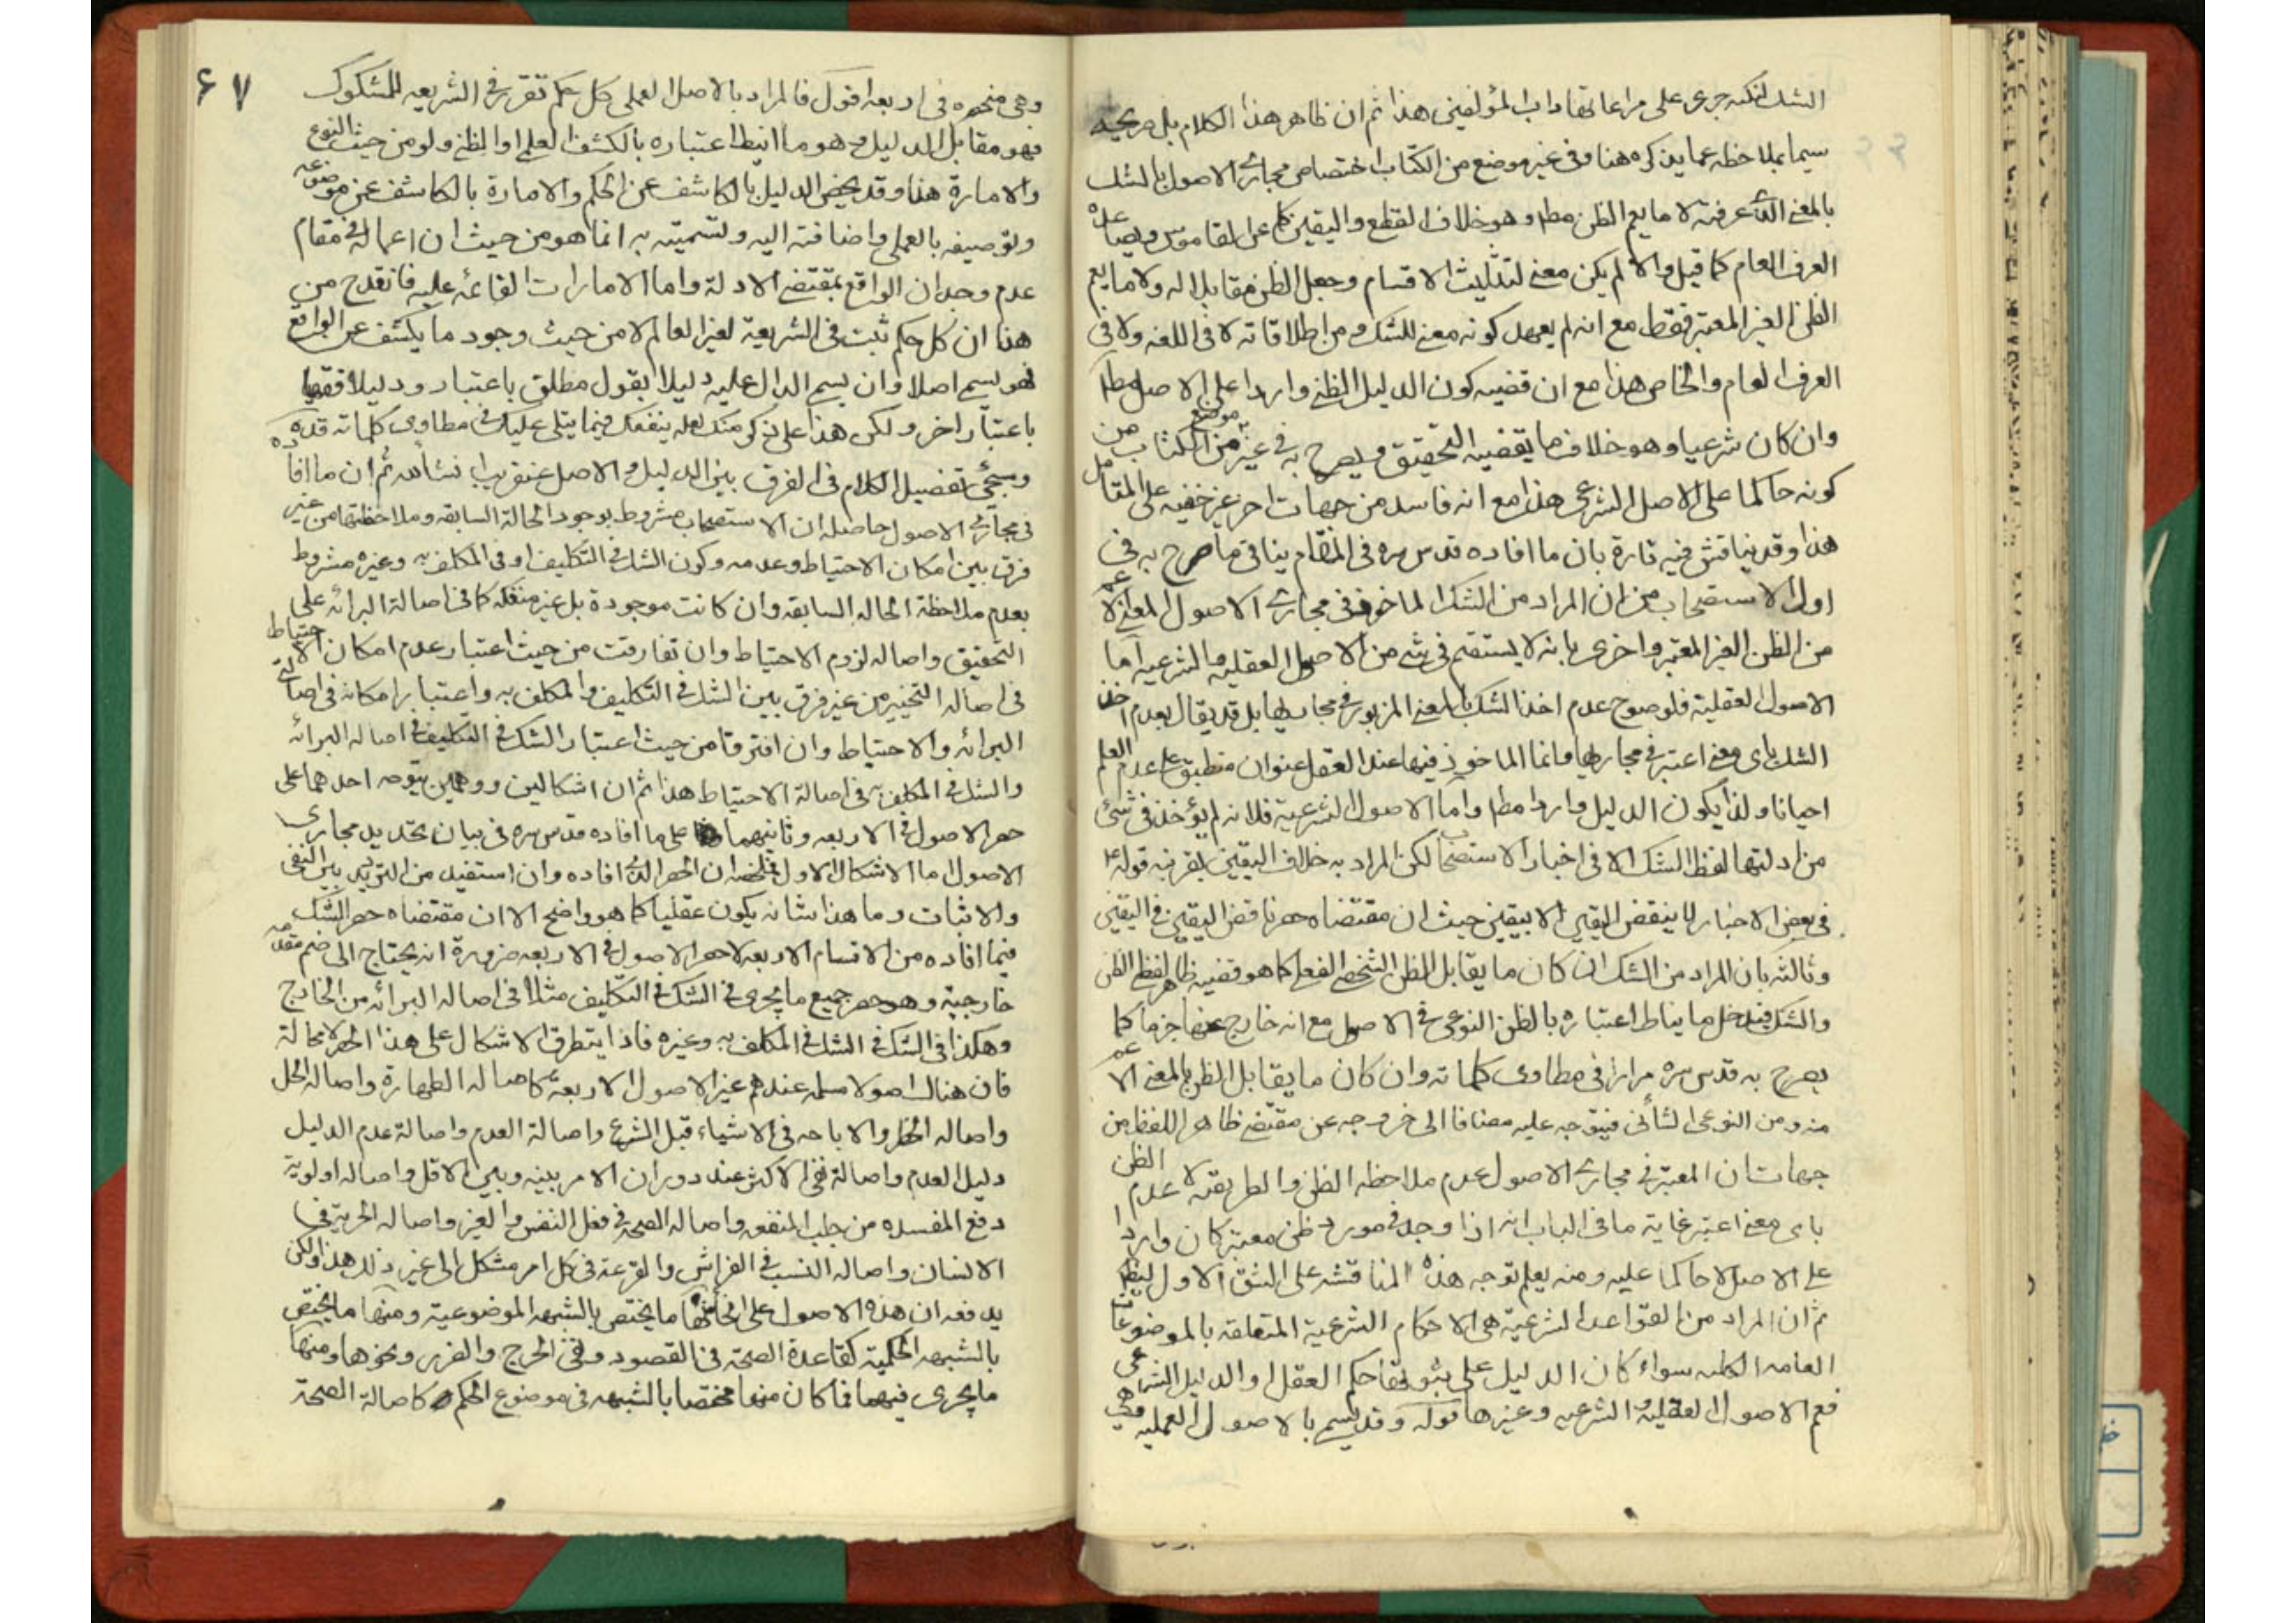 الشك لنكنه جرى على مراعاتها داب المؤلفين هذا ثم ان ظاهر هذا الكلام بل صريحه
سيما بملاحظه عما يذكره هنا وفى غير موضع من الكتاب اختصاص مجارى الاصول بالشك
بالمعنى الذى عرفته لا ما يعم الظن مطلقا وهو خلاف القطع واليقين كما عن القاموس وبضاعده
العرف العام كما قيل والا لم يكن معنى لتثليث الاقسام وجعل الظن مقابلا له ولا ما يعم
الظن الغير المعتبر فقط مع انه لم يعهد كونه معنى للشك ومن اطلاقاته لا فى اللغه ولا فى
العرف العام والخاص هذا مع ان قضيه كون الدليل الظنى واردا على الاصل مطلقا
وان كان شرعيا وهو خلاف ما يقضيه التحقيق ويصرح به فى غير موضع من الكتاب من
كونه حاكما على الاصل الشرعى هذا مع انه فاسد من جهات اخر غير خفيه على المتامل
هذا وقد يناقش فيه تارة بان ما افاده قدس سره فى المقام ينافى ما صرح به فى
اول الاستصحاب من ان المراد من الشك الماخوذ فى مجارى الاصول المعنى الاعم
من الظن الغير المعتبر واخرى بانه لا يستقيم فى شئ من الاصول العقليه والشرعيه اما
الاصول العقلية فلوضوح عدم اخذ الشك بالمعنى المزبور فى مجاريها بل قد يقال بعدم اخذ
الشك باى معنى اعتبر فى مجاريها وانما الماخوذ فيها عند العقل عنوان منطبق على عدم العلم
احيانا ولذا يكون الدليل واردا مطلقا واما الاصول الشرعية فلانه لم يؤخذ فى شئ
من ادلتها لفظ الشك الا فى اخبار الاستصحاب لكن المراد به خلاف اليقين بقرينه قوله
فى بعض الاخبار لا ينقض اليقين الا بيقين حيث ان مقتضاه حصر ناقض اليقين فى اليقين
وثالثه بان المراد من الشك ان كان ما يقابل الظن الشخصى الفعلى كما هو قضيه ظاهر لفظ الظن
والشك فيدخل ما يناط اعتباره بالظن النوعى فى الاصول مع انه خارج عنها جزما كما
يصرح به قدس سره مرارا فى مطاوى كلماته وان كان ما يقابل الظن بالمعنى الاعم
منه ومن النوعى الشأنى فيتوجه عليه مضافا الى خروجه عن مقتضى ظاهر اللفظ من
جهات ان المعتبر فى مجارى الاصول عدم ملاحظه الظن والطريقه لا عدم الظن
باى معنى اعتبر غاية ما فى الباب انه اذا وجد فى مورد ظن معتبر كان واردا
على الاصل لا حاكما عليه ومنه يعلم توجه هذه المناقشه على الشق الاول ايضا
ثم ان المراد من القواعد الشرعية هى الاحكام الشرعية المتعلقه بالموضوعات
العامه الكليه سواء كان الدليل على ثبوتها حكم العقل او الدليل الشرعى
فعم الاصول العقليه والشرعيه وغيرها قوله وقد يسمى بالاصول العمليه وهى
٦٧
وهى منحصره فى اربعه اقول فالمراد بالاصل العملى كل حكم تقرر فى الشريعه للمشكوك
فهو مقابل الدليل وهو ما انيط اعتباره بالكشف العلمى او الظنى ولو من حيث النوع
والامارة هنا وقد يخص الدليل بالكاشف عن الحكم والامارة بالكاشف عن موضوعه
وتوصيفه بالعملى واضافته اليه وتسميته به انما هو من حيث ان اعماله فى مقام
عدم وجدان الواقع بمقتضى الادلة واما الامارات القائمه عليه فانقدح من
هنا ان كل حكم ثبت فى الشريعة لغير العالم لا من حيث وجود ما يكشف عن الواقع
فهو يسمى اصلا وان يسمى الدال عليه دليلا بقول مطلق باعتبار ودليلا فقهيا
باعتبار اخر ولكن هذا على ذكر منك لعله ينفعك فيما يتلى عليك فى مطاوى كلماته قدس سره
وسيجئ تفصيل الكلام فى الفرق بين الدليل والاصل عنقريب انشاء الله ثم ان ما افاده
فى مجارى الاصول حاصله ان الاستصحاب مشروط بوجود الحالة السابقه وملاحظتها من غير
فرق بين امكان الاحتياط وعدمه وكون الشك فى التكليف او فى المكلف به وغيره مشروط
بعدم ملاحظة الحاله السابقه وان كانت موجودة بل غير منفكه كما فى اصالة البرائه على
التحقيق واصاله لزوم الاحتياط وان تفارقت من حيث اعتبار عدم امكان الاحتياط
فى اصاله التخيير من غير فرق بين الشك فى التكليف والمكلف به واعتبار امكانه فى اصالتى
البرائه والاحتياط وان افترقتا من حيث اعتبار الشك فى التكليف فى اصاله البرائه
والشك فى المكلف به فى اصالة الاحتياط هذا ثم ان اشكالين ووهمين يتوجه احدهما على
حصر الاصول فى الاربعه وثانيهما على ما افاده قدس سره فى بيان تحديد مجارى
الاصول اما الاشكال الاول فملخصه ان الحصر الذى افاده وان استفيد من الترديد بين النفى
والاثبات وما هذا شانه يكون عقليا كما هو واضح الا ان مقتضاه حصر الشك
فيما افاده من الاقسام الاربعه لا حصر الاصول فى الاربعه ضرورة انه يحتاج الى ضم مقدمه
خارجية وهو حصر جميع ما يجرى فى الشك فى التكليف مثلا فى اصاله البرائه من الخارج
وهكذا فى الشك فى الشك فى المكلف به وغيره فاذا يتطرق الاشكال على هذا الحصر لا محالة
فان هناك اصولا مسلمه عندهم غير الاصول الاربعة كاصاله الطهارة واصاله الحل
واصاله الحظر والاباحه فى الاشياء قبل الشرع واصالة العدم واصالة عدم الدليل
دليل العدم واصالة نفى الاكثر عند دوران الامر بينه وبين الاقل واصاله اولوية
دفع المفسده من جلب المنفعه واصاله الصحة فى فعل النفس والغير واصاله الحرية فى
الانسان واصاله النسب فى الفراش والقرعة فى كل امر مشكل الى غير ذلك هذا ولكن
يدفعه ان هذه الاصول على انحائها ما يختص بالشبهه الموضوعية ومنها ما يختص
بالشبهه الحكمية كقاعدة الصحة فى القصود ونفى الحرج والضرر ونحوها ومنها
ما يجرى فيهما فما كان منها مختصا بالشبهه فى موضوع الحكم كاصالة الصحة